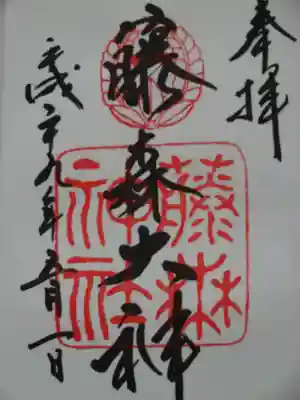 奉拝
藤森大神
平成二十九年五月一日
藤森
神社